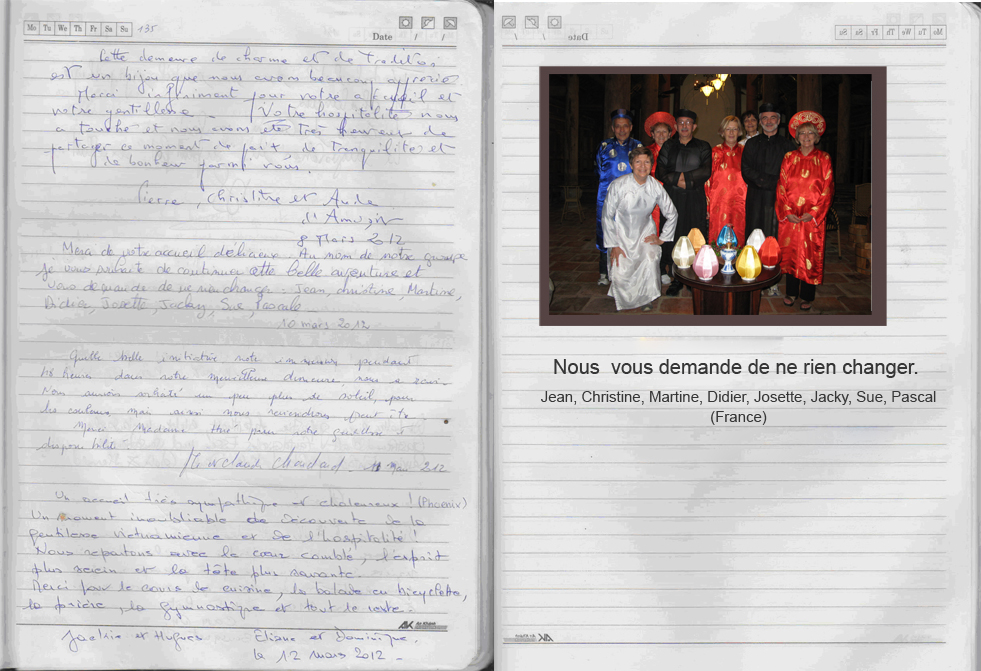 Mo Tu We Th Fr Sa Su 135
Date / /
Cette demeure de charme et de tradition
est un bijou que nous avons beaucoup apprécié
Merci infiniment pour votre accueil et
votre gentillesse. Votre hospitalité nous
a touché et nous avons été très heureux de
partager ce moment de paix de tranquilité et
de bonheur parmi vous.
Pierre, Christine et Aude
8 Mars 2012
Merci de votre accueil délicieux. Au nom de notre groupe
je vous souhaite de continuer cette belle aventure et
vous demande de ne rien changer. Jean, Christine, Martine,
Didier, Josette, Jacky, Sue, Pascale
10 mars 2012
Quelle belle initiative notre immersion pendant
48 heures dans votre merveilleuse demeure
Nous aurions souhaité un peu plus de soleil, pour
les couleurs, mais aussi nous reviendrons peut être
Merci Madame pour votre gentillesse et
disponibilité
Mars 2012
Un accueil très sympathique et chaleureux ! (Phoenix)
Un moment inoubliable de découverte de la
gentillesse vietnamienne et de l'hospitalité !
Nous repartons avec le cœur comblé, l'esprit
plus serein et la tête plus savante.
Merci pour le cours de cuisine, la balade en bicyclette,
la prière, la gymnastique et tout le reste.
Jackie et Hugues Eliane et Dominique,
le 12 mars 2012
Nous vous demande de ne rien changer.
Jean, Christine, Martine, Didier, Josette, Jacky, Sue, Pascal
(France)